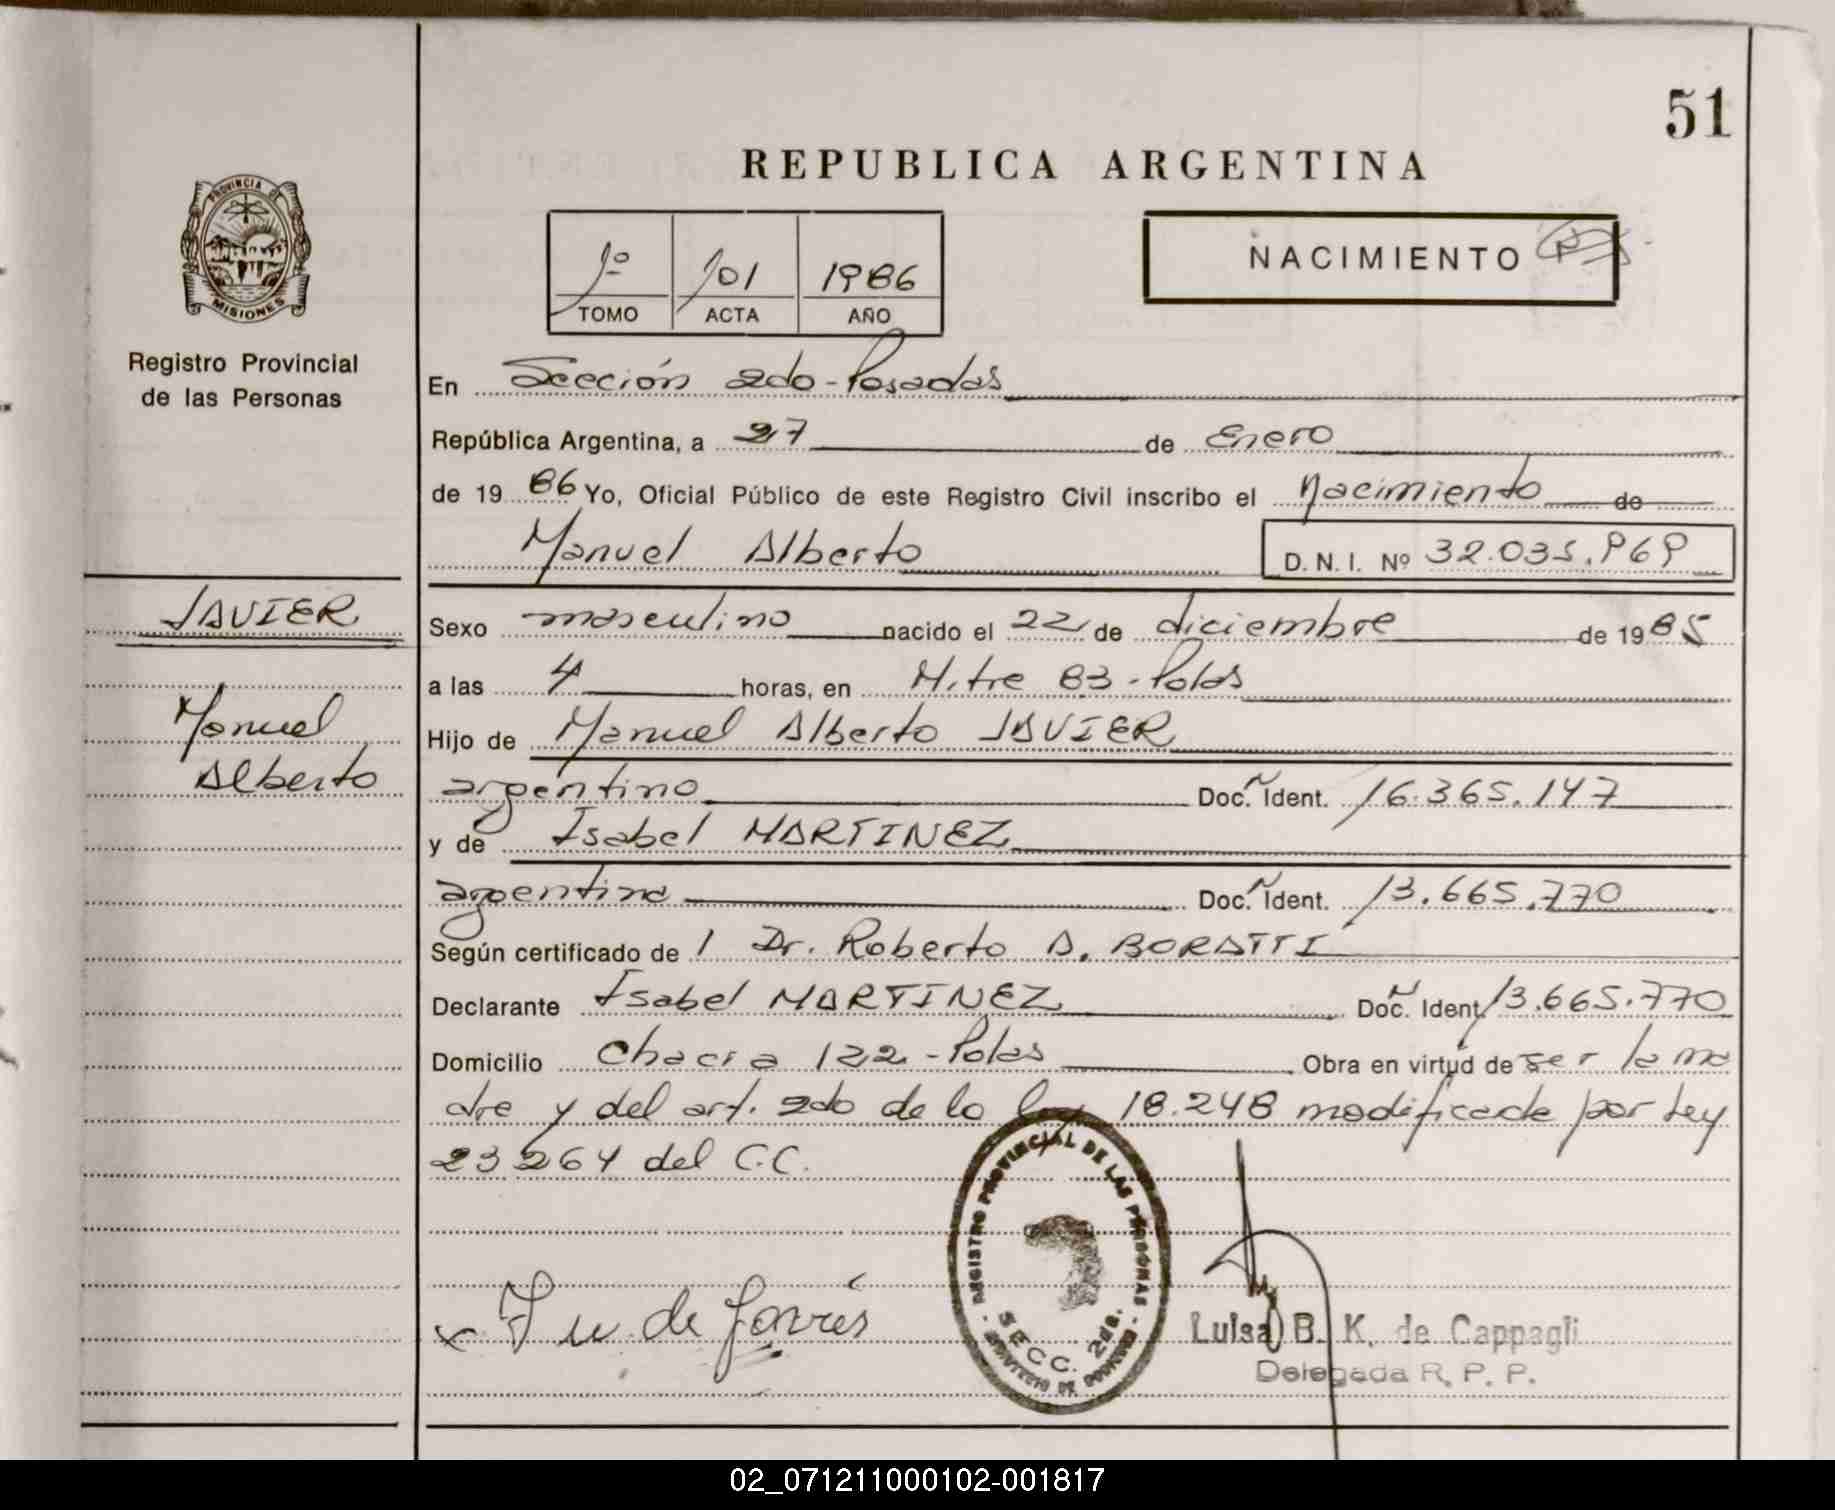 51
REPUBLICA ARGENTINA
PROVINCIA DE
MISIONES
Registro Provincial
de las Personas
1º 101 1986
TOMO ACTA AÑO
NACIMIENTO
En Sección 2do - Posadas
República Argentina, a 27 de Enero
de 1986 Yo, Oficial Público de este Registro Civil inscribo el Nacimiento de
Manuel Alberto D. N. I. Nº 32.035.969
JAVIER
Manuel
Alberto
Sexo masculino nacido el 22 de diciembre de 1985
a las 4 horas, en Mitre 83 - Pdas
Hijo de Manuel Alberto JAVIER
argentino Doc. Ident. 16.365.147
y de Isabel MARTINEZ
argentina Doc. Ident. 13.665.770
Según certificado de 1 Dr. Roberto A. BORATTI
Declarante Isabel MARTINEZ Doc. Ident. 13.665.770
Domicilio Chacra 122 - Pdas Obra en virtud de ser la ma
dre y del art. 2do de la ley 18.248 modificada por ley
23264 del C.C.
REGISTRO PROVINCIAL DE LAS PERSONAS
SECC. 2da.
x de
Luisa B. K. de Cappagli
Delegada R. P. P.
02_071211000102-001817